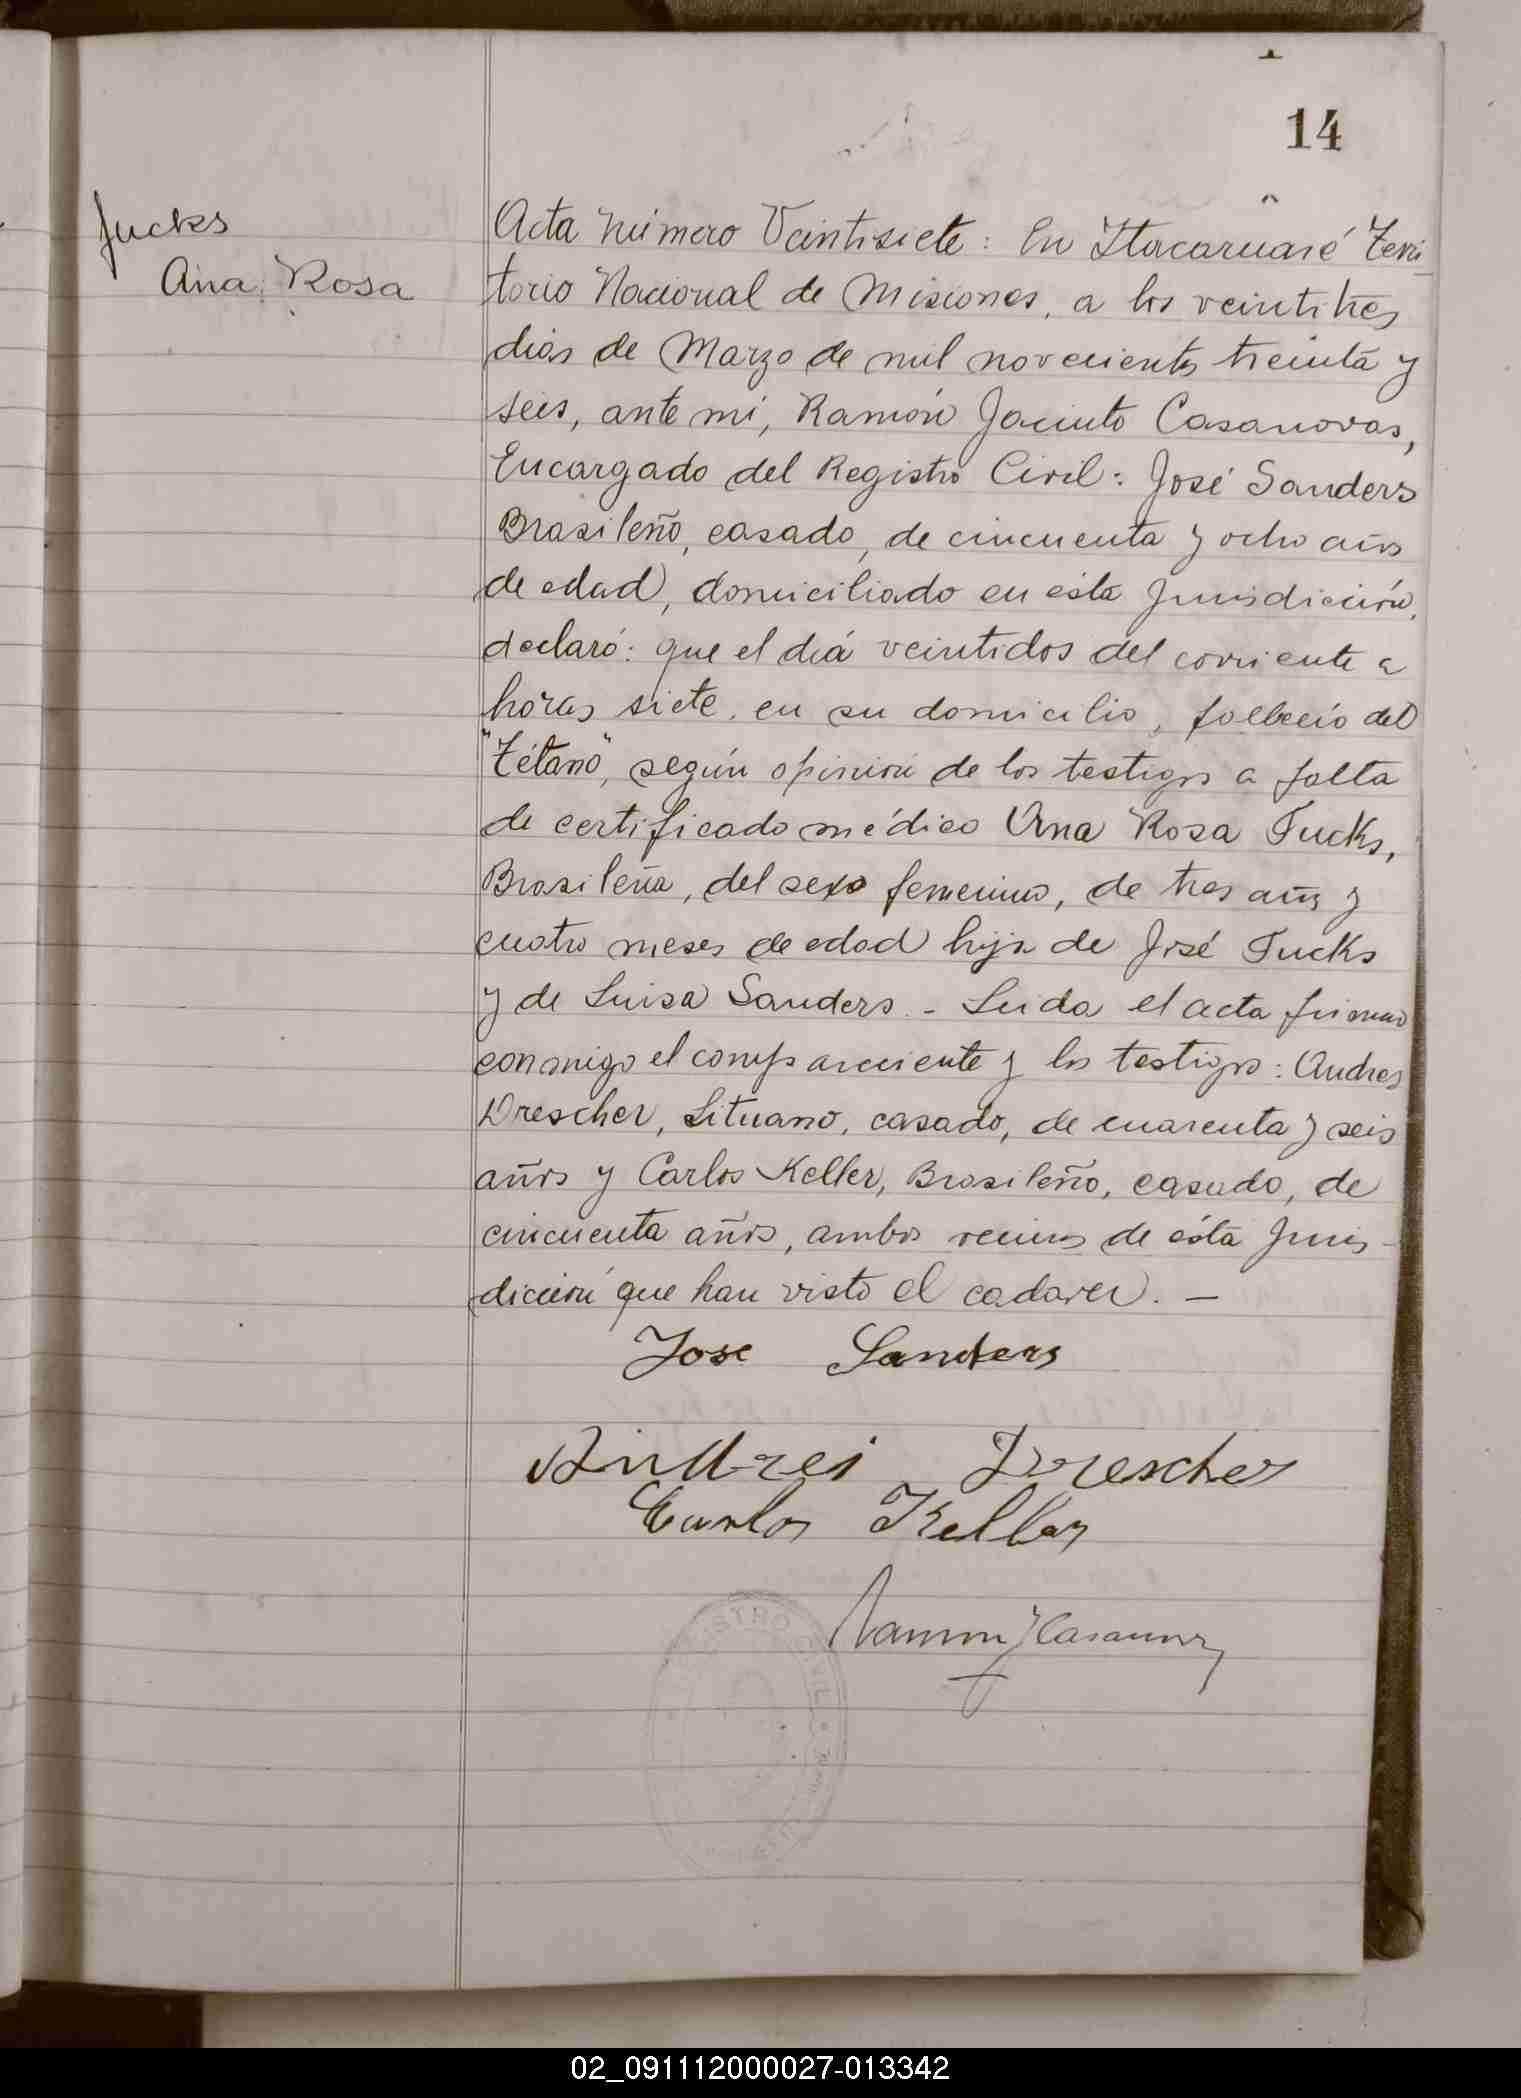 14
Jucks
Ana Rosa
Acta Número Veintisiete: En Itacaruaré Terri-
torio Nacional de Misiones, a los veintitres
dias de Marzo de mil novecientos treinta y
seis, ante mi, Ramón Jacinto Casanovas,
Encargado del Registro Civil: José Sanders
Brasileño, casado, de cincuenta y ocho años
de edad, domiciliado en ésta Jurisdicción,
declaró: que el diá veintidos del corriente a
horas siete, en su domicilio, falleció del
"Tétano", según opinión de los testigos a falta
de certificado médico Ana Rosa Fucks,
Brasileña, del sexo femenino, de tres años y
cuatro meses de edad hija de José Fucks
y de Luisa Sanders. - Leida el acta firman
conmigo el compareciente y los testigos: Andres
Drescher, Lituano, casado, de cuarenta y seis
años y Carlos Keller, Brasileño, casado, de
cincuenta años, ambos vecinos de ésta Juris-
dicción que han visto el cadaver. —
Jose Sanders
Andrei Drescher
Carlos Keller
Ramon J Casanovas
REGISTRO CIVIL
02_091112000027-013342